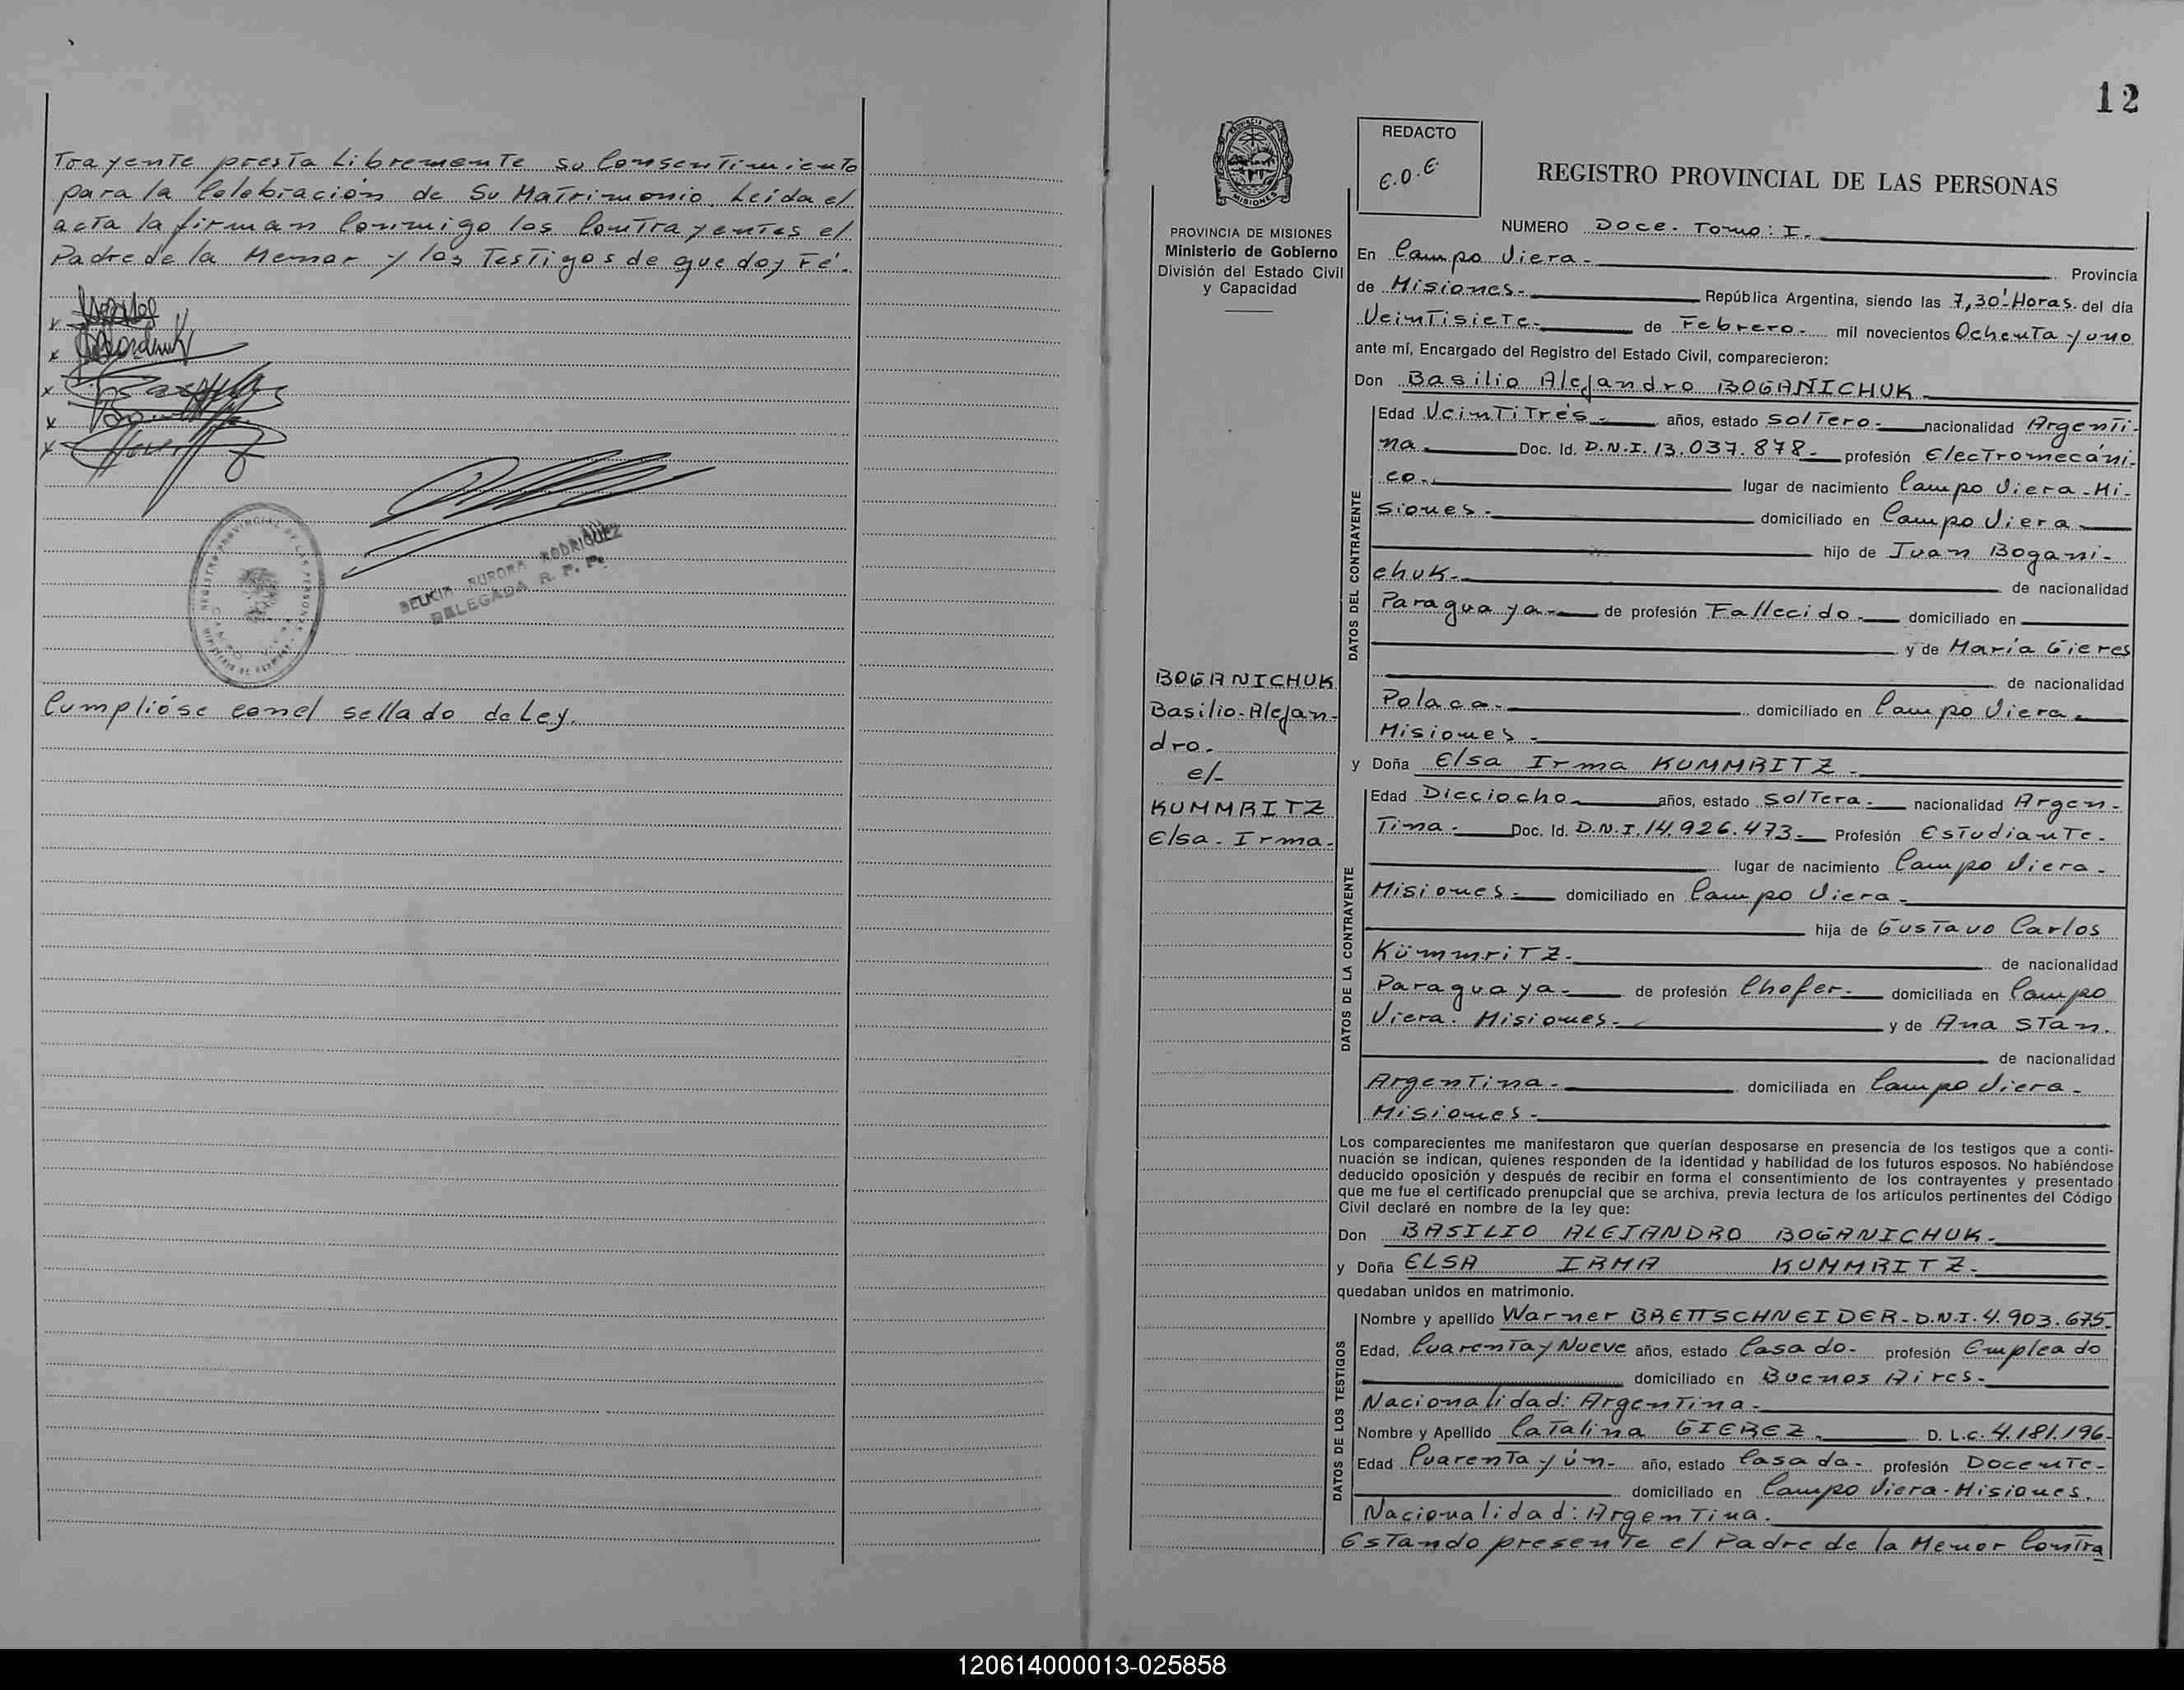 Trayente presta Libremente su Consentimiento
para la Celebración de Su Matrimonio. Leída el
acta la firman Conmigo los Contrayentes el
Padre de la Menor y los Testigos de que doy Fé.
DELICIA AURORA RODRIGUEZ
DELEGADA R. P. P.
Cumplióse con el sellado de Ley.
12
PROVINCIA DE MISIONES
Ministerio de Gobierno
División del Estado Civil
y Capacidad
BOGANICHUK
Basilio-Alejan-
dro.
c/-
KUMMRITZ
Elsa. Irma-
REDACTO
E.O.E.
REGISTRO PROVINCIAL DE LAS PERSONAS
NUMERO Doce. Tomo: I.
En Campo Viera- Provincia
de Misiones- República Argentina, siendo las 7,30' Horas. del día
Veintisiete- de Febrero- mil novecientos Ochenta y uno
ante mí, Encargado del Registro del Estado Civil, comparecieron:
Don Basilio Alejandro BOGANICHUK
DATOS DEL CONTRAYENTE
Edad Veintitrés- años, estado Soltero- nacionalidad Argenti-
na- Doc. Id. D.N.I. 13.037.878- profesión Electromecáni-
co- lugar de nacimiento Campo Viera-Mi-
siones- domiciliado en Campo Viera
hijo de Juan Bogani-
chuk- de nacionalidad
Paraguaya- de profesión Fallecido- domiciliado en
y de María Gieres
de nacionalidad
Polaca- domiciliado en Campo Viera-
Misiones-
y Doña Elsa Irma KUMMRITZ-
DATOS DE LA CONTRAYENTE
Edad Dieciocho- años, estado Soltera- nacionalidad Argen-
Tina- Doc. Id. D.N.I. 14.926.473- Profesión Estudiante-
lugar de nacimiento Campo Viera-
Misiones- domiciliado en Campo Viera-
hija de Gustavo Carlos
Kümmritz- de nacionalidad
Paraguaya- de profesión Chofer- domiciliada en Campo
Viera. Misiones- y de Ana Stan.
de nacionalidad
Argentina- domiciliada en Campo Viera-
Misiones-
Los comparecientes me manifestaron que querían desposarse en presencia de los testigos que a conti-
nuación se indican, quienes responden de la identidad y habilidad de los futuros esposos. No habiéndose
deducido oposición y después de recibir en forma el consentimiento de los contrayentes y presentado
que me fue el certificado prenupcial que se archiva, previa lectura de los artículos pertinentes del Código
Civil declaré en nombre de la ley que:
Don BASILIO ALEJANDRO BOGANICHUK-
y Doña ELSA IRMA KUMMRITZ-
quedaban unidos en matrimonio.
DATOS DE LOS TESTIGOS
Nombre y apellido Warner BRETTSCHNEIDER-D.N.I. 4.903.675-
Edad, Cuarenta y Nueve años, estado Casado- profesión Empleado
domiciliado en Buenos Aires-
Nacionalidad: Argentina-
Nombre y Apellido Catalina GIEREZ. D. L.C. 4.181.196-
Edad Cuarenta y ún- año, estado Casada- profesión Docente-
domiciliado en Campo Viera-Misiones.
Nacionalidad: Argentina.
Estando presente el Padre de la Menor Contra
120614000013-025858